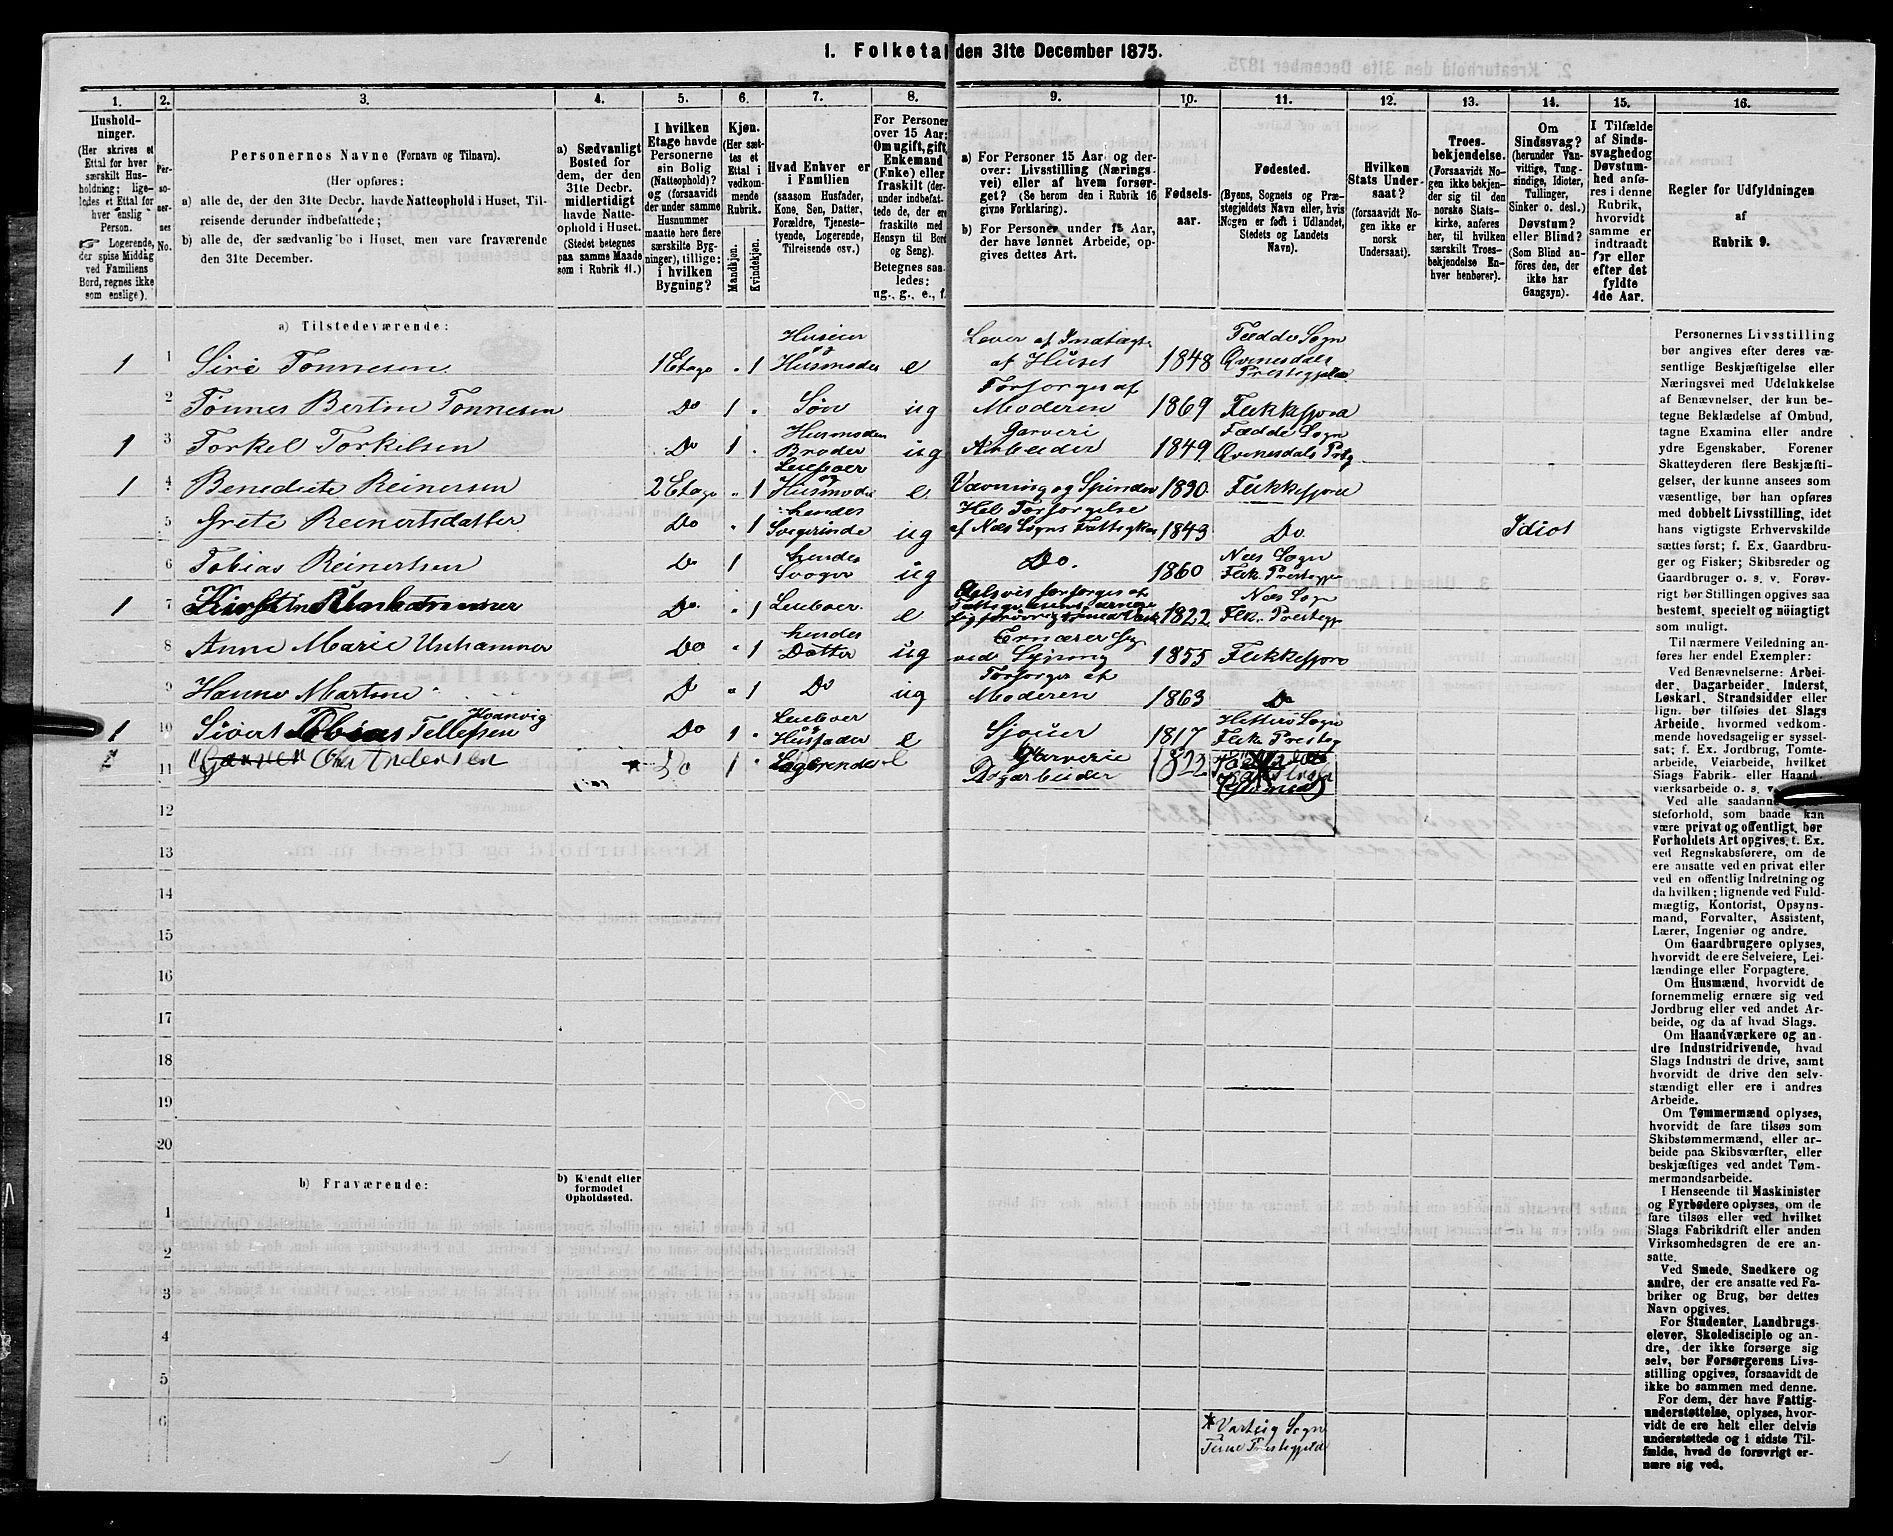 1. Folketal den 31te December 1875.
1. 2. 3. 4. 5. 6. 7. 8. 9. 10. 11. 12. 13. 14. 15. 16.
Husholdninger.
(Her skrives et
Ettal for hver
særskilt Husholdning;
ligeledes et Ettal
for hver enslig
Person.
Logerende,
der spise Middag
ved Familiens
Bord, regnes ikke
som enslige).
Personernes No.
Personernes Navne (Fornavn og Tilnavn).
(Her opføres:
a) alle de, der den 31te Decbr. havde Natteophold i Huset, Tilreisende derunder indbefattede;
b) alle de, der sædvanlig bo i Huset, men vare fraværende
den 31te December.
a) Sædvanligt
Bosted for
dem, der den
31te Decbr.
midlertidigt
havde Natteophold i Huset.
(Stedet betegnes
paa samme Maade
som i Rubrik 11.)
I hvilken
Etage havde
Personerne
sin Bolig
(Natteophold)?
(forsaavidt
der under samme
Husnummer
maatte høre flere
særskilte Bygninger), tillige:
i hvilken
Bygning?
Kjøn.
(Her sættes et
Ettal i
vedkommende
Rubrik.
Mandkjøn.
Kvindekjøn.
Hvad Enhver er
i Familien
(saasom Husfader,
Kone, Søn, Datter,
Forældre, Tjenestetyende, Logerende,
Tilreisende osv.)
For Personer
over 15 Aar:
Om ugift, gift,
Enkemand
(Enke) eller
fraskilt (derunder indbefattede de, der ere
fraskilte med
Hensyn til Bord
og Seng).
Betegnes saaledes:
ug., g., e., f.
a) For Personer 15 Aar og derover: Livsstilling (Næringsvei) eller af hvem forsørget? (Se herom den i Rubrik 16
givne Forklaring).
b) For Personer under 15 Aar,
der have lønnet Arbeide, opgives dettes Art.
Fødselsaar.
Fødested.
(Byens, Sognets og Præstegjeldets Navn eller, hvis
Nogen er født i Udlandet,
Stedets og Landets
Navn).
Hvilken
Stats Undersaat?
(forsaavidt Nogen ikke er
norsk
Undersaat).
Troesbekjendelse.
(Forsaavidt Nogen ikke bekjender sig til den
norske Statskirke, anføres
her, til hvilken
særskilt Troesbekjendelse Enhver henhører).
Om
Sindssvag?
(herunder Vanvittige, Tungsindige, Idioter,
Tullinger,
Sinker o. desl.)
Døvstum?
eller Blind?
(Som Blind anføres den, der
ikke har
Gangsyn).
I Tilfælde
af Sindssvaghed og
Døvstumhed anføres i denne
Rubrik,
hvorvidt
samme er
indtraadt
før eller
efter det
fyldte
4de Aar.
Regler for Udfyldningen
af
Rubrik 9.
a) Tilstedeværende:
1 1 Siri Tønnesen 1 Etage 1 Huseier og Husmoder e Lever af Indtægt af Huset 1848 Fædde Sogn Qvinesdals Prestegjeld
2 Tønnes Bertin Tønnesen Do 1 Søn ug Forsørges af Moderen 1869 Flekkefjord
1 3 Torkel Torkelsen Do 1 Husmoders Broder ug Garveri Arbeider 1849 Fædde Sogn Qvinesdals Prstg
1 4 Benedicte Reinersen 2 Etage 1 Leieboer og Husmoder e Vævning og Spinden 1830 Flekkefjord
5 Grete Reinertsdatter Do 1 hendes Svegerinde ug Hel Forsørgelse af Næs Sogns Fattigkas 1843 Do. Idiot
6 Tobias Reinertsen Do 1 hendes Svoger ug Do. 1860 Næs Sogn Flek. Prestegje
1 7 Kirstine Unhammer Do. 1 Leieboer e 1822 Næs Sogn Flek. Prestegje
8 Anne Marie Unhammer Do 1 hendes Datter ug Ernærer Sig ved Syning 1855 Flekkefjord
9 Hanne Martine Do 1 Do ug Forsørges af Moderen 1863 Do
1 10 Sivert Tobias Tellefsen Hvanvig Do 1 Leieboer og Husfader e Sjouer 1817 Hitterø Sogn Flek. Presteg
11 Ole Andersen * Do 1 Logerende e Garverie Dagarbeider 1822
12
13
14
15
16
17
18
19
20
b) Fraværende:
b) Kjendt eller
formodet
Opholdssted.
1
2
3
4
5
6
* Varteig Sogn
Tune Prestegjeld
Personernes Livsstilling
bør angives efter deres væsentlige Beskjæftigelse eller
Næringsvei med Udelukkelse
af Benævnelser, der kun betegne Beklædelse af Ombud,
tagne Examina eller andre
ydre Egenskaber. Forener
Skatteyderen flere Beskjæftigelser, der kunne ansees som
væsentlige, bør han opføres
med dobbelt Livsstilling, idet
hans vigtigste Erhvervskilde
sættes først; f. Ex. Gaardbruger og Fisker; Skibsreder og
Gaardbruger o. s. v. Forøvrigt bør Stillingen opgives saa
bestemt, specielt og nöiagtigt
som muligt.
Til nærmere Veiledning anføres her endel Exempler:
Ved Benævnelserne: Arbeider, Dagarbeider, Inderst,
Løskarl, Strandsidder eller
lign. bør tilføies det Slags
Arbeide, hvormed vedkommende hovedsagelig er sysselsat; f. Ex. Jordbrug, Tomtearbeide, Veiarbeide, hvilket
Slags Fabrik- eller Haandværksarbeide o. s. v.
Ved alle saadanne
steforhold, som baade kan
være privat og offentligt, bør
Forholdets Art opgives, t. Ex.
ved Regnskabsførere, om de
ere ansatte ved en privat eller
ved en offentlig Indretning og
da hvilken; lignende ved Fuldmægtig, Kontorist, Opsynsmand, Forvalter, Assistent,
Lærer, Ingeniør og andre.
Om Gaardbrugere oplyses,
hvorvidt de ere Selveiere, Leilændinge eller Forpagtere.
Om Husmænd, hvorvidt de
fornemmelig ernære sig ved
Jordbrug eller ved andet Arbeide, og da af hvad Slags.
Om Haandværkere og andre Industridrivende, hvad
Slags Industri de drive, samt
hvorvidt de drive den selvstændigt eller ere i andres
Arbeide.
Om Tømmermænd oplyses,
hvorvidt de fare tilsøs som
Skibstømmermænd, eller arbeide paa Skibsværfter, eller
beskjæftiges ved andet Tømmermandsarbeide.
I Henseende til Maskinister
og Fyrbødere oplyses, om de
fare tilsøs eller ved hvilket
Slags Fabrikdrift eller anden
Virksomhedsgren de ere ansatte.
Ved Smede, Snedkere og
andre, der ere ansatte ved Fabriker og Brug, bør dettes
Navn opgives.
For Studenter, Landbrugselever, Skoledisciple og andre, der ikke forsørge sig
selv, bør Forsørgerens Livsstilling opgives, forsaavidt de
ikke bo sammen med denne.
For dem, der have Fattigunderstøttelse, oplyses, hvorvidt de ere helt eller delvis
understøttede og i sidste Tilfælde, hvad de forøvrigt ernære sig ved.